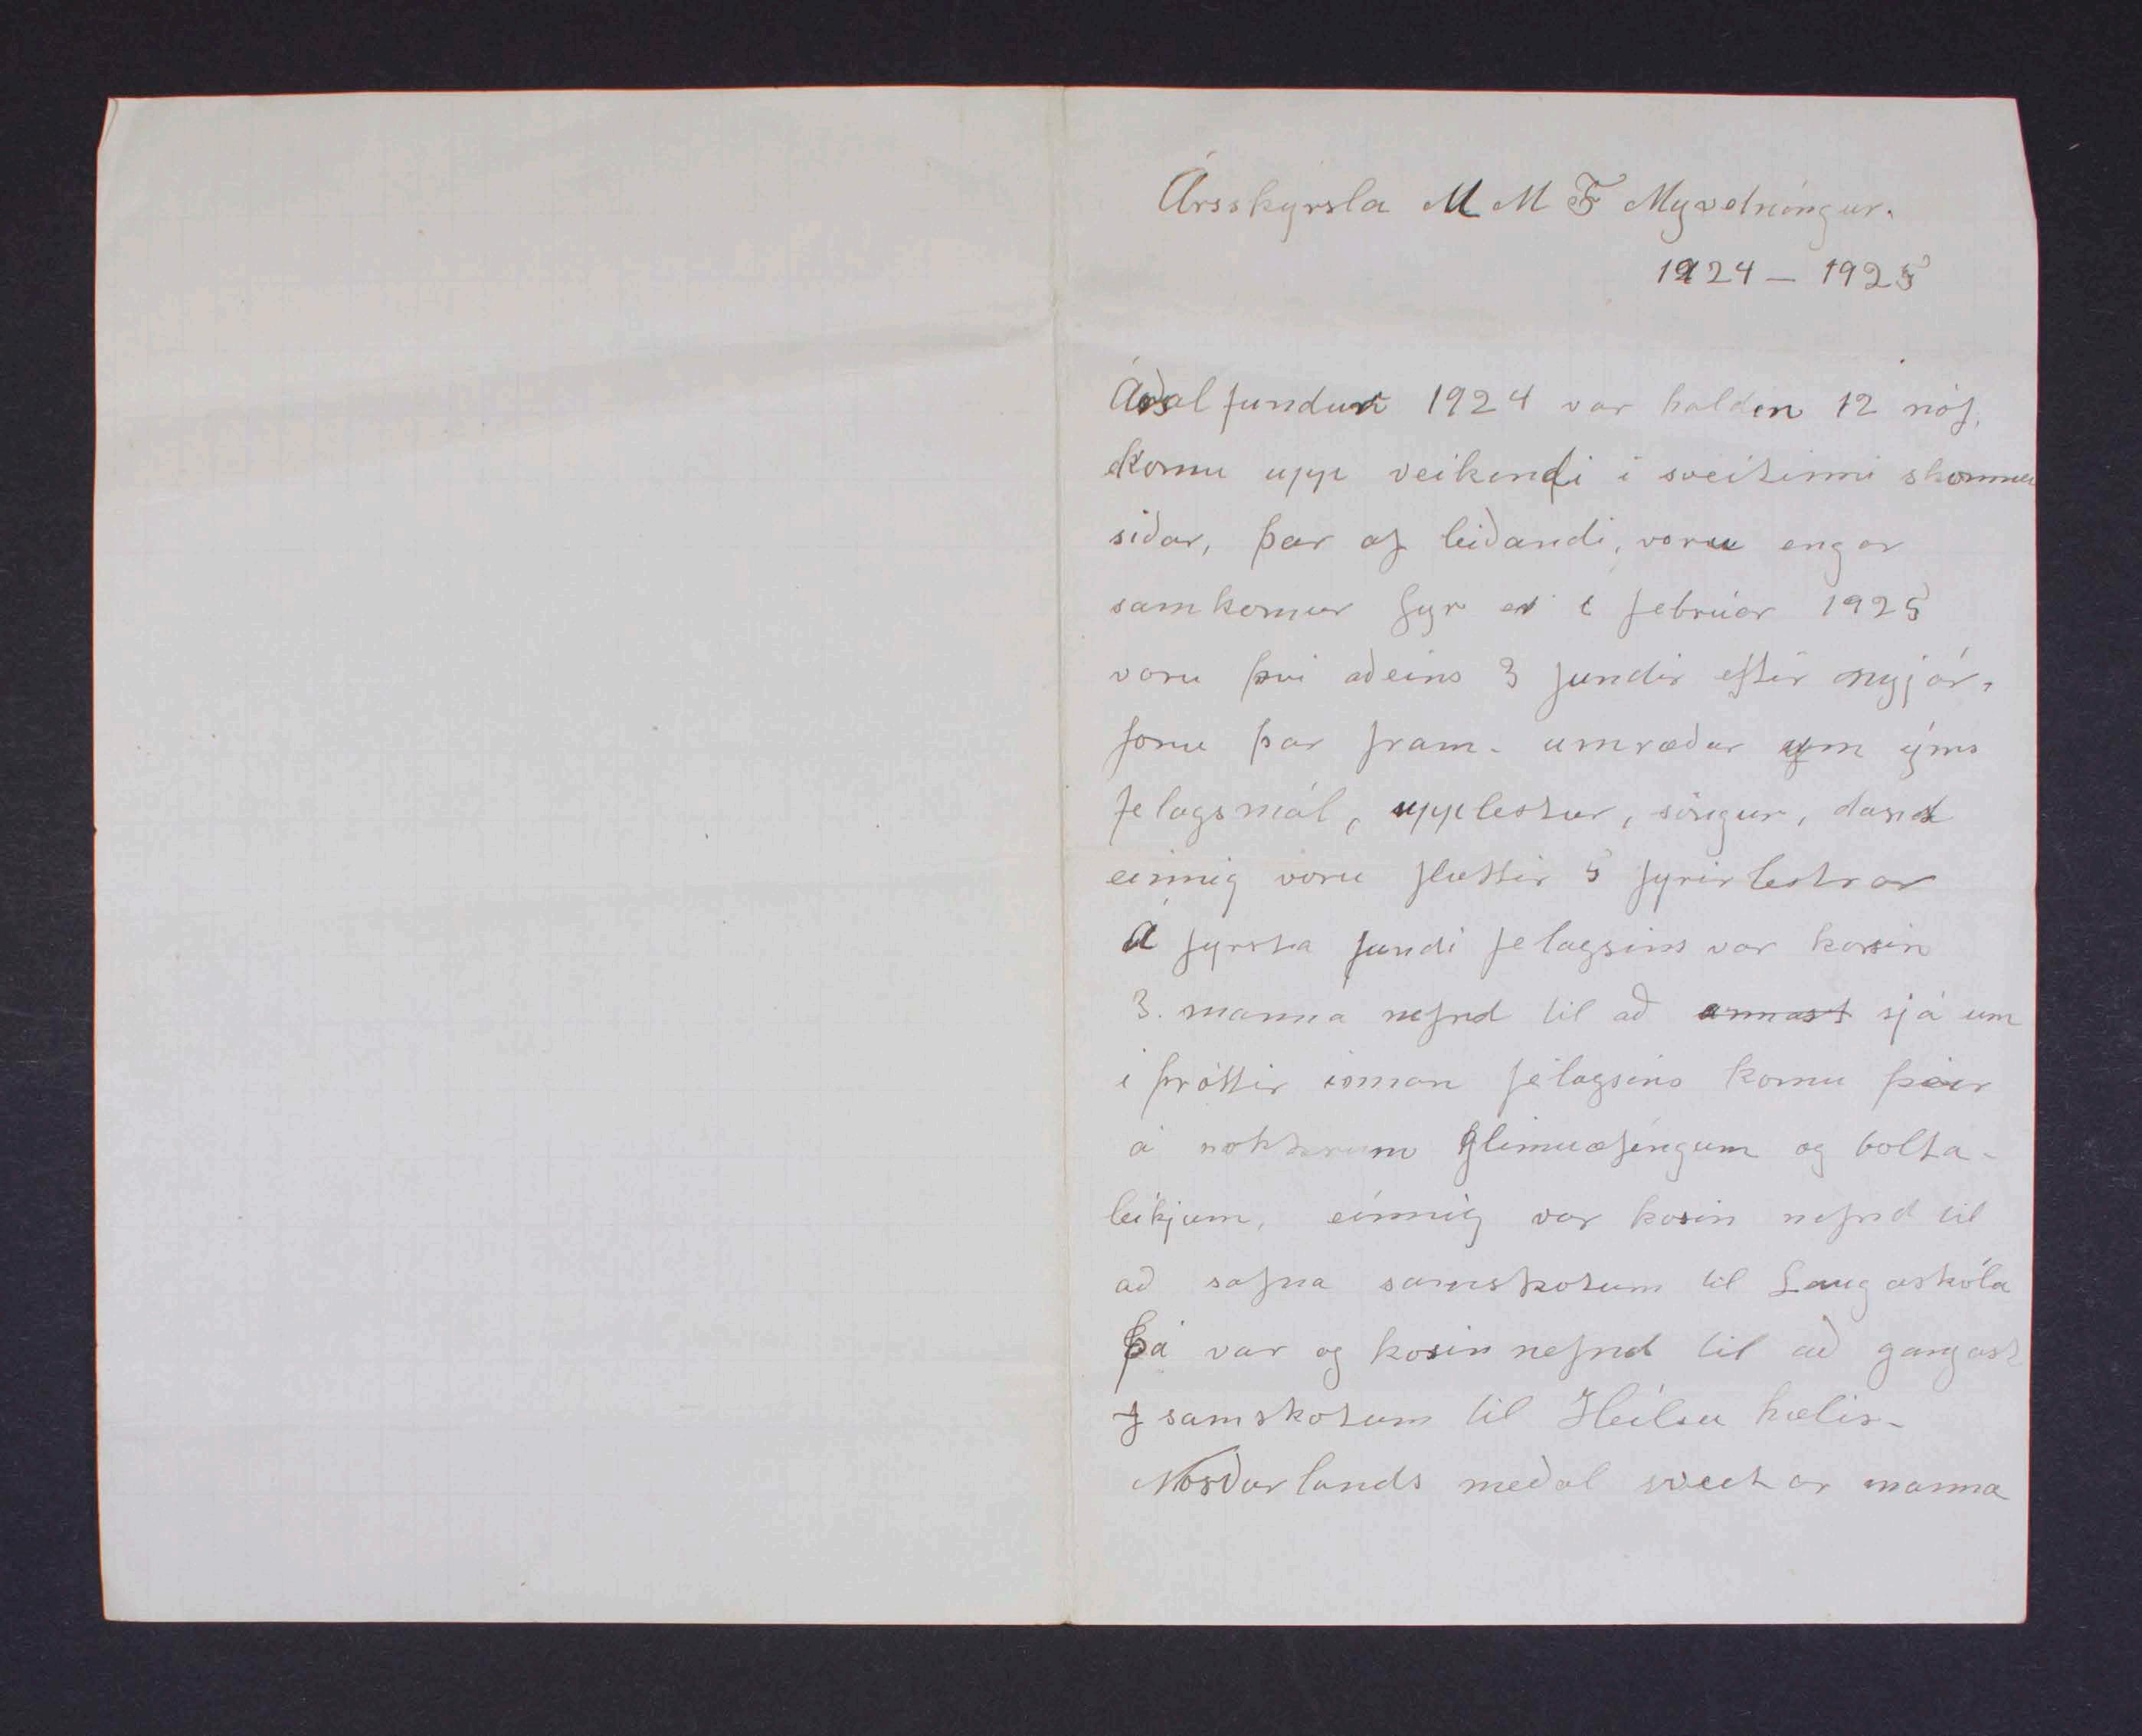 Ársskyrsla U M F Myvetningur.
1924 – 1925
Aðalfundur 1924 var halden 12 nóf.
Komu upp veikendi i sveitinni skommu
siðar, þar af leiðandi, voru engar
samkomur fyr en i februar 1925
voru þvi aðeins 3 fundir eftir nyjár.
foru þar fram. umræður um ýms
felagsmál, upplestur, söngur, dans
einnig voru fluttir 5 fyrirlestrar
Á fyrsta fundi felagsins var kosin
3. manna nefnd til að annast sjá um
iþróttir innan félagsins komu þeir
á nokkrum glimuæfingum og bolta-
leikjum, einnig var kosin nefnd til
að safna samskotum til Laugaskóla
Þá var og kosin nefnd til að gangast
f samskotum til Heilsu hælis-
Norðurlands meðal sveitar manna